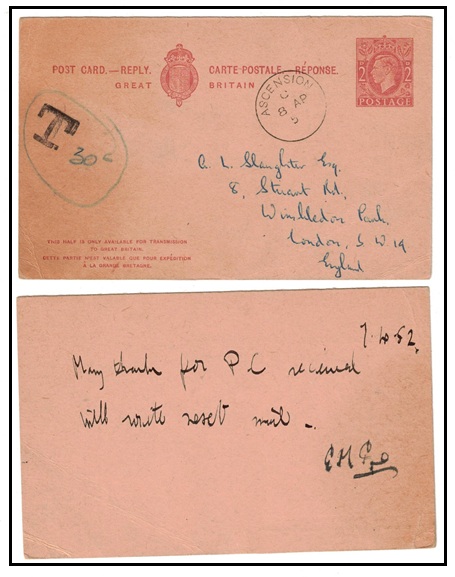 POST CARD.—REPLY. CARTE POSTALE—RÉPONSE.
GREAT BRITAIN
2 2
POSTAGE
ASCENSION
C
8 AP
5
T
30c
A. L. Slaughter Esq.
8, Stuart Rd,
Wimbledon Park
London, S W 19
England
THIS HALF IS ONLY AVAILABLE FOR TRANSMISSION
TO GREAT BRITAIN.
CETTE PARTIE N'EST VALABLE QUE POUR EXPÉDITION
À LA GRANDE BRETAGNE.
7.4.52.
Many thanks for P C received
will write next mail -